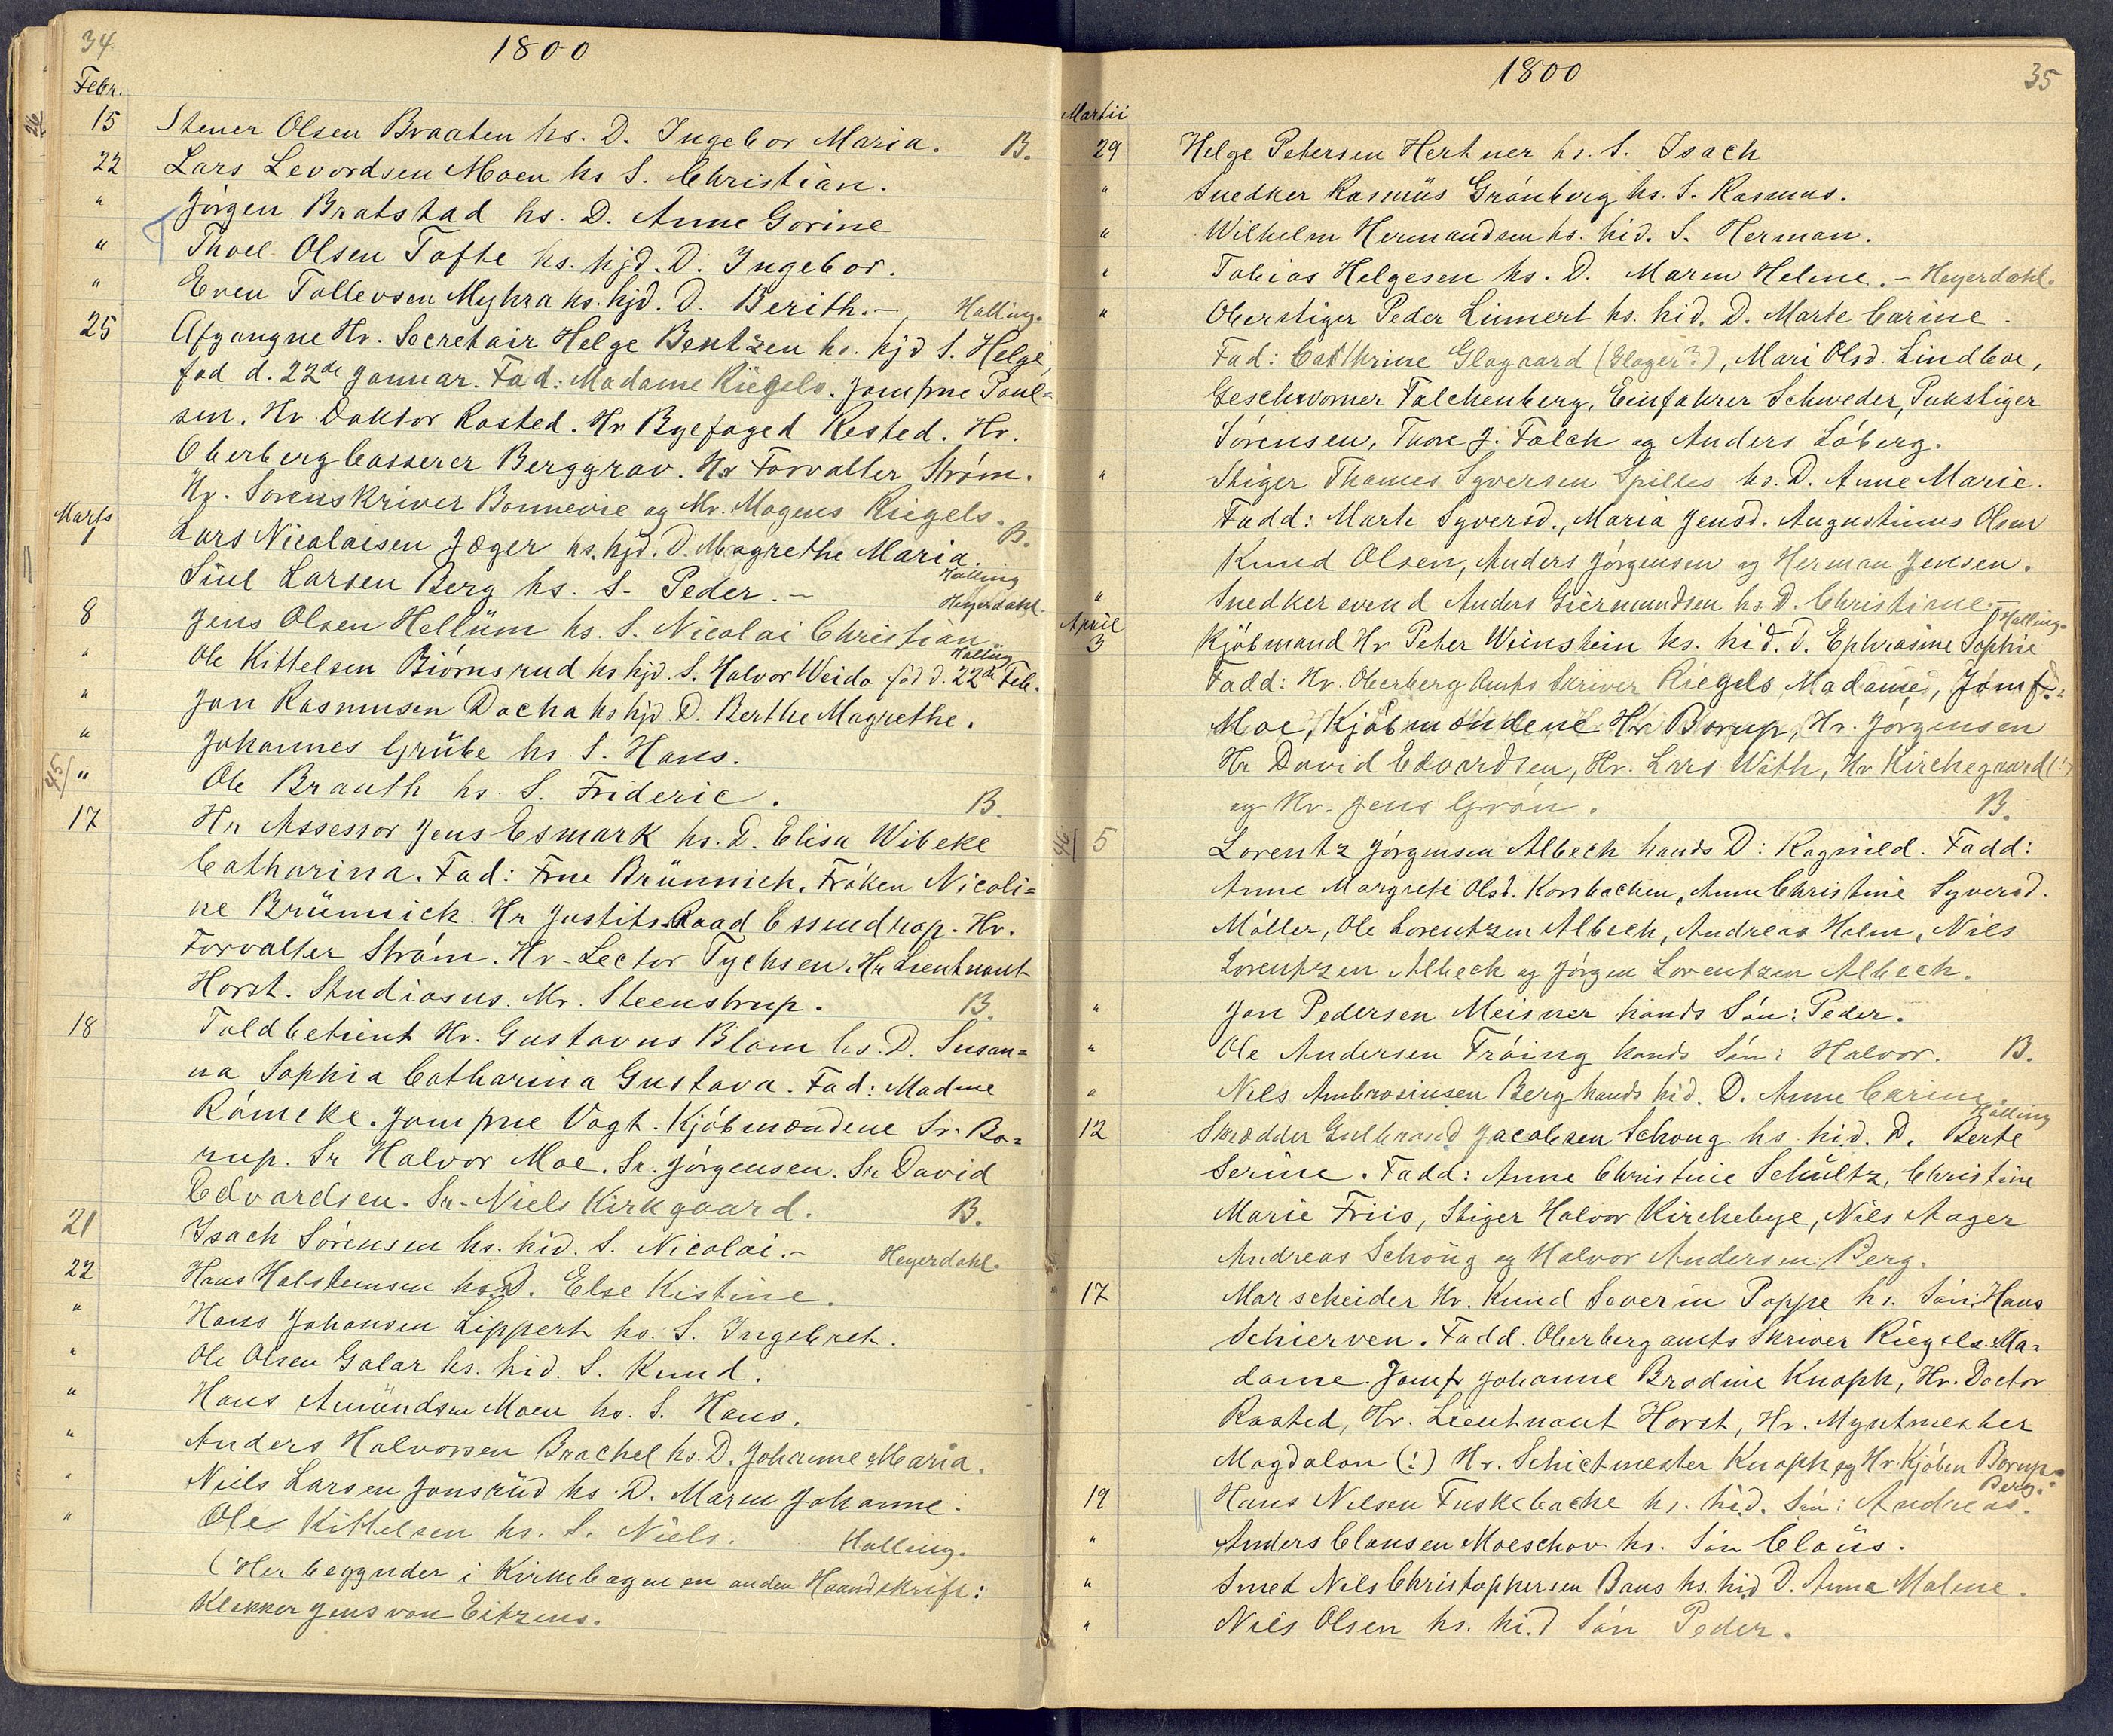 34.
1800
Febr.
15 Stener Olsen Braaten hs. D. Ingebor Maria. B.
22 Lars Levordsen Moen hs S. Christian.
" Jörgen Bratstad hs. D. Anne Gorine
" Thoel Olsen Tofte hs. hjd. D. Ingebor.
" Even Tollevsen Myhra hs. hjd. D. Berith. – Halling.
25 Afgangne Hr. Secretair Helge Bentzen hs. hjd S. Helge,
fød d. 22de Januar. Fad: Madame Riegels. Jompne Poul=
sen. Hr Doktor Rosted. Hr Byefoged Rosted. Hr.
Oberbergcasserer Berggrav. Hr Forvalter Ström.
Hr. Sorenskriver Bonnevie og Mr. Mogens Riegels. B.
Marts Lars Nicolaisen Jæger hs. hjd. D. Magrethe Maria. Halling
Siul Larsen Berg hs. S. Peder. – Heyerdahl.
8 Jens Olsen Hellüm hs. S. Nicolai Christian. Halling
" Ole Kittelsen Biörnsrud hs hjd. S. Halvor Weido föd d. 22de Feb.
" Jon Rasmusen Docka hs hjd. D. Berthe Magrethe.
" Johannes Grübe hs. S. Hans.
45 " Ole Brauth hs. S. Frideric. B.
17 Hr Assessor Jens Esmark hs. D. Elisa Wibeke
Catharina. Fad: Frue Brünnich. Fröken Nicoli=
ne Brünnich. Hr Justits Raad Essendrop. Hr.
Forvalter Ström. Hr. Lector Tychsen. Hr Lieutnant
Horst. Studiosus. Mr. Steenstrup. B.
18 Toldbetient Hr. Gustavus Blom hs. D. Susan=
na Sophia Catharina Gustava. Fad: Madme
Römcke. Jompne Vogt. Kjöbmændene Sr. Bo=
rup. Sr Halvor Moe. Sr. Jörgensen. Sr David
Edvardsen. Sr. Niels Kirkgaard. B.
21 Isach Sörensen hs. hid. S. Nicolai. – Heyerdahl.
22 Hans Halstensen hs. D. Else Kistine.
" Hans Johansen Lippert hs. S. Ingebret.
" Ole Olsen Golar hs. hid. S. Knud.
" Hans Amündsen Moen hs. S. Hans.
" Anders Halvorsen Brachel hs. D. Johanne Maria.
" Niels Larsen Jonsrüd hs. D. Maren Johanne.
" Ole Kittelsen hs. S. Niels. Halling.
(Her begynder i Kirkebogen en anden Haandskrift:
Klokker Jens von Eitzens.
1800
35
Martii
29 Helge Petersen Hertner hs. S. Isach
" Snedker Rasmüs Grönberg hs. S. Rasmus.
" Wilhelm Hermandsen hs. hid. S. Herman.
" Tobias Helgesen hs. D. Maren Helene. – Heyerdahl.
" Oberstiger Peder Linnert hs. hid. D. Marte Carine.
Fad: Cathrine Glogaard (Glager?), Mari Olsd. Lindboe,
Geschworner Falchenberg, Einfahrer Schweder, Pukstiger
Sörensen, Thore J. Falch og Anders Löberg.
" Stiger Thomes Syversen Spilles hs. D. Anne Marie.
Fadd: Marte Syversd., Maria Jensd. Augustinus Olsen
Knud Olsen, Anders Jörgensen og Herman Jensen.
" Snedker svend Anders Giermundsen hs. D. Christiane. – Halling.
April
3 Kjöbmand Hr Peter Weinstein hs. hid. D. Ephrosine Sophie
Fadd: Hr. Oberberg Amts Skriver Riegels Madame, Jomf.
Moe, Kjöbmændene Hr Borup, Hr. Jorgensen
Hr David Edvardsen, Hr. Lars With, Hr Kirchegaard (!)
og Hr. Jens Grön. B.
46 5 Lorentz Jörgensen Albech hands D: Ragnild. Fadd:
Anne Margrete Olsd. Korsbachen, Anne Christine Syversd.
Möller, Ole Lorentzen Albech, Andreas Holm, Niels
Lorentzen Albeck og Jörgen Lorentzen Albech.
" Jon Pedersen Meisner hands Sön: Peder.
" Ole Andersen Tröing hands Sön: Halvor. B.
" Nils Ambrosiusen Berg hands hid. D. Anne Carine. Halling
12 Skrædder Gulbrand Jacobsen Schoug hs. hid. D. Berte
Serine. Fadd: Anne Christine Schultz, Christine
Marie Friis, Stiger Halvor Kirchebye, Nils Aager
Andreas Schoug og Halvor Andersen Berg.
17 Marscheider Hr. Knud Severin Poppe hs. Sön: Hans
Schierven. Fadd. Oberbergamts Skriver Riegels Ma=
dame. Jomfr Johanne Brodine Knoph, Hr. Doctor
Rosted, Hr. Lieutnant Horst, Hr. Myntmester
Magdalon (!) Hr. Schictmester Knoph og Hr. Kjöbm Borup.
19 Hans Nilsen Fuskebache hs. hid. Sön: Andreas. Berg.
" Anders Clausen Moeschov hs. Sön Claüs.
" Smed Nils Christophersen Baus hs. hid D. Anna Malene.
" Nils Olsen hs. hid Sön Peder.